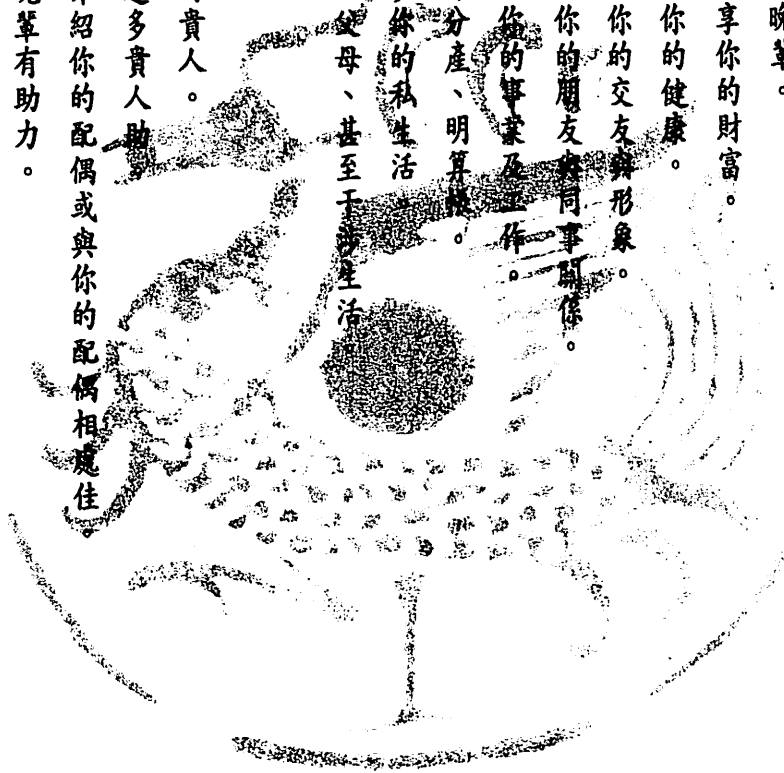 晚輩。
享你的財富。
你的健康。
你的交友與形象。
你的朋友與同事關係。
你的事業及工作。
分產、明算帳。
你的私生活。
父母、甚至干涉生活。
貴人。
多貴人助。
紹你的配偶或與你的配偶相處佳。
輩有助力。